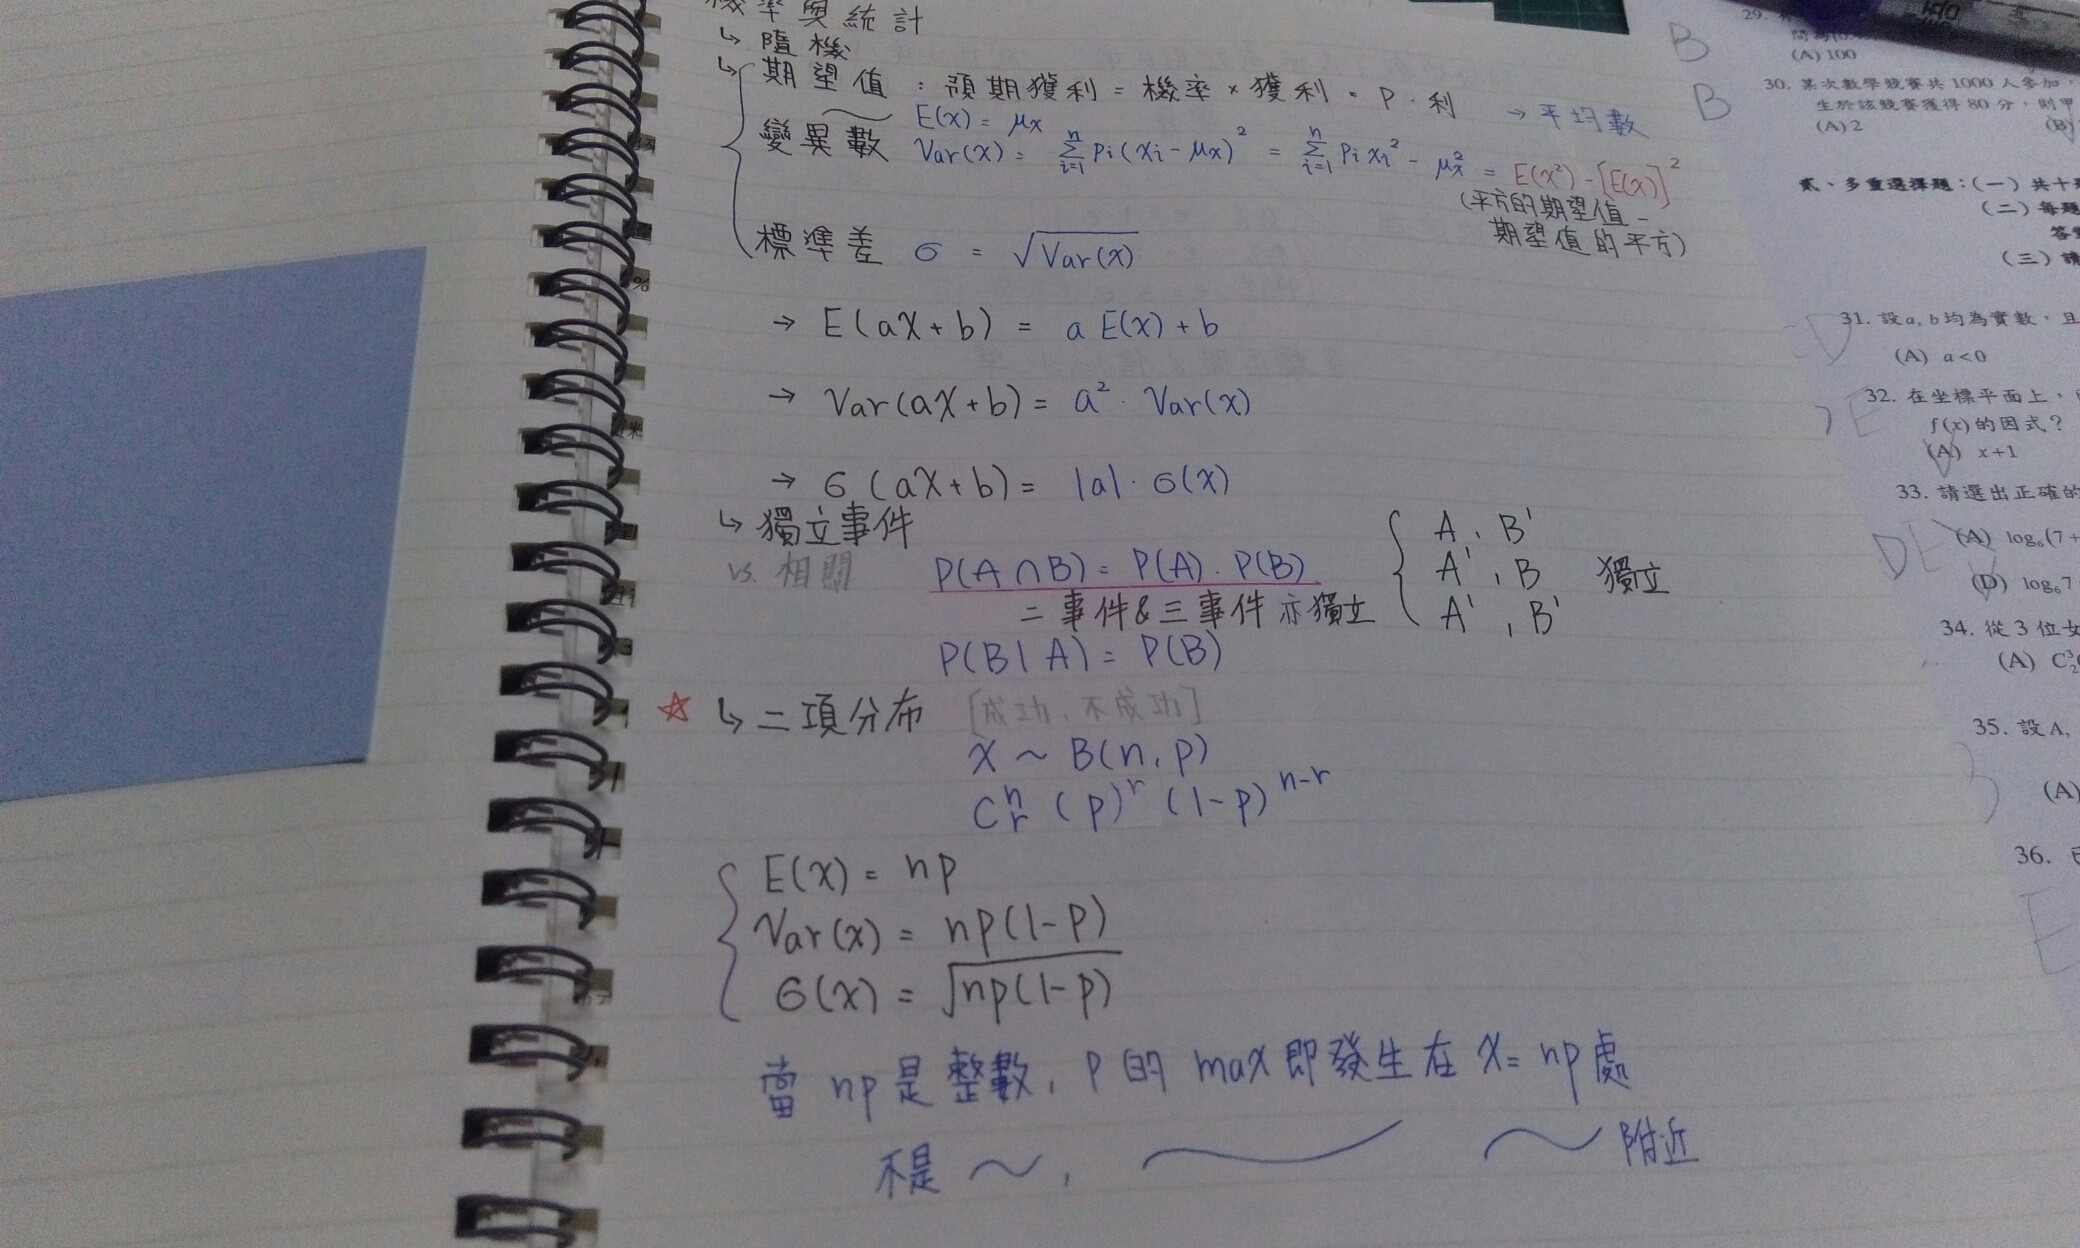 機率與統計
↳ 隨機
↳ 期望值 : 預期獲利 = 機率 × 獲利 = P · 利 → 平均數
E(x) = μx
變異數 Var(x) = Σ_{i=1}^{n} Pi(xi - μx)² = Σ_{i=1}^{n} Pi xi² - μx² = E(x²) - [E(x)]²
(平方的期望值 -
期望值的平方)
標準差 σ = √Var(x)
→ E(aX + b) = a E(x) + b
→ Var(aX + b) = a² · Var(x)
→ σ (aX + b) = |a| · σ(x)
↳ 獨立事件
vs. 相關 P(A ∩ B) = P(A) · P(B)
二事件&三事件亦獨立
A , B'
A' , B 獨立
A' , B'
P(B | A) = P(B)
☆ ↳ 二項分布 [成功、不成功]
X ~ B(n, p)
C^n_r (p)^r (1-p)^{n-r}
E(x) = np
Var(x) = np(1-p)
σ(x) = √np(1-p)
當 np 是整數, P 的 max 即發生在 X = np 處
不是 ~ , ~ ~ 附近
B
29.
(A) 100
B
30. 某次數學競賽共 1000 人參加,
生於該競賽獲得 80 分,則甲
(A) 2 (B)
貳、多重選擇題:(一) 共十
(二) 每題
答
(三) 請
D
31. 設 a, b 均為實數,且
(A) a<0
E
32. 在坐標平面上,
f(x) 的因式?
(A) x+1
33. 請選出正確的
DE
(A) log₆(7+
(D) log₆7
34. 從 3 位女
(A) C³₂
35. 設 A,
(A)
36.
E